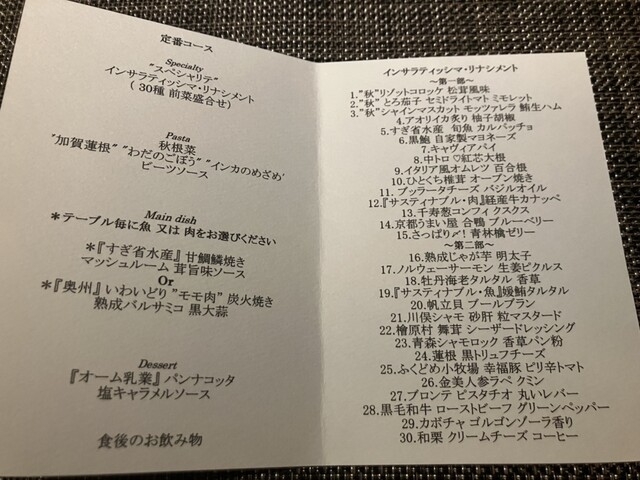 定番コース
Specialty
"スペシャリテ"
インサラティッシマ・リナシメント
( 30種 前菜盛合せ)
Pasta
秋根菜
"加賀蓮根" "わだのごぼう" "インカのめざめ'
ビーツソース
Main dish
*テーブル毎に魚 又は 肉をお選びください
*『すぎ省水産』甘鯛鱗焼き
マッシュルーム 茸旨味ソース
Or
*『奥州』いわいどり "モモ肉" 炭火焼き
熟成バルサミコ 黒大蒜
Dessert
『オーム乳業』パンナコッタ
塩キャラメルソース
食後のお飲み物
インサラティッシマ・リナシメント
~第一部~
1."秋"リゾットコロッケ 松茸風味
2."秋" とろ茄子 セミドライトマト ミモレット
3."秋"シャインマスカット モッツァレラ 鮪生ハム
4.アオリイカ炙り 柚子胡椒
5.すぎ省水産 旬魚 カルパッチョ
6.黒鮑 自家製マヨネーズ
7.キャヴィアパイ
8.中トロ ♡紅芯大根
9.イタリア風オムレツ 百合根
10.ひとくち椎茸 オーブン焼き
11.ブッラータチーズ バジルオイル
12.『サスティナブル・肉』経産牛カナッペ
13.千寿葱コンフィ クスクス
14.京都うまい屋 合鴨 ブルーベリー
15.さっぱり〆! 青林檎ゼリー
~第二部~
16.熟成じゃが芋 明太子
17.ノルウェーサーモン 生姜ピクルス
18.牡丹海老タルタル 香草
19.『サスティナブル・魚』媛鮪タルタル
20.帆立貝 ブールブラン
21.川俣シャモ 砂肝 粒マスタード
22.檜原村 舞茸 シーザードレッシング
23.青森シャモロック 香草パン粉
24.蓮根 黒トリュフチーズ
25.ふくどめ小牧場 幸福豚 ピリ辛トマト
26.金美人参ラペ クミン
27.ブロンテ ピスタチオ 丸いレバー
28.黒毛和牛 ローストビーフ グリーンペッパー
29.カボチャ ゴルゴンゾーラ香り
30.和栗 クリームチーズ コーヒー